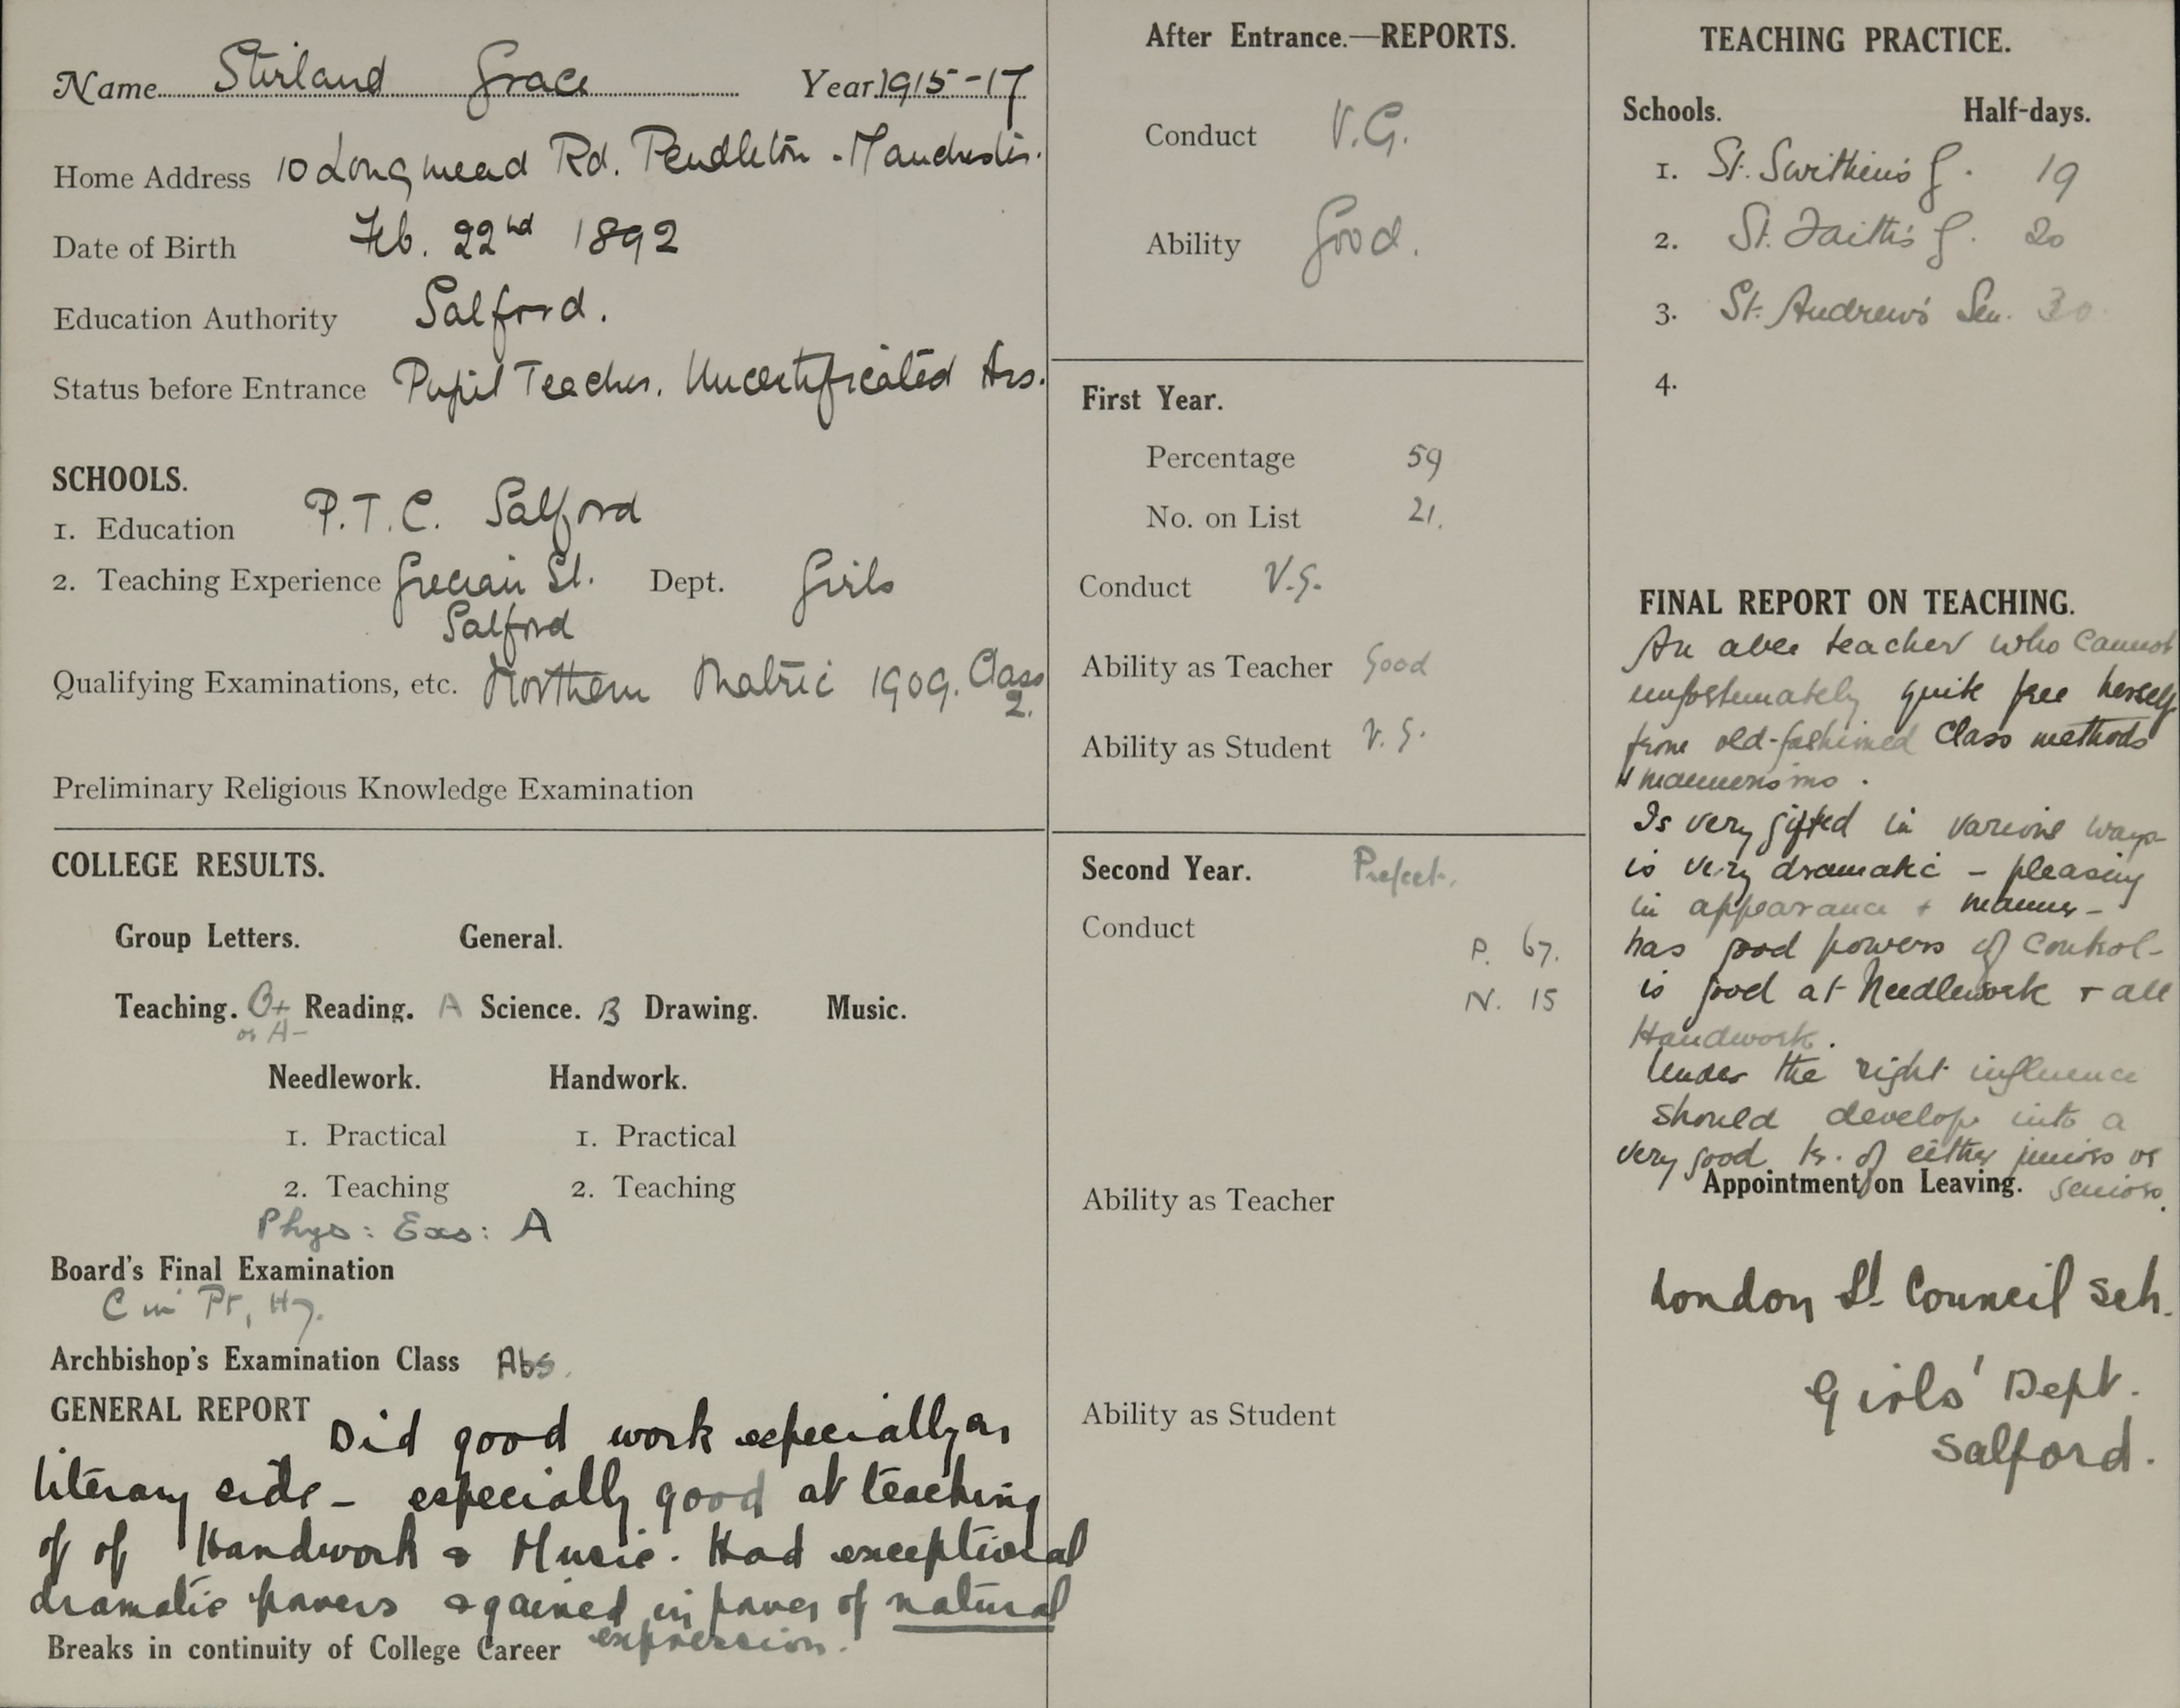 Name Stirland Grace Year 1915-17
Home Address 10 Longmead Rd. Pendleton - Manchester.
Date of Birth Feb. 22nd 1892
Education Authority Salford.
Status before Entrance Pupil Teacher. Uncertificated Ass.
SCHOOLS.
1. Education P.T.C. Salford
2. Teaching Experience Grecian St. Dept. Girls
Salford
Qualifying Examinations, etc. Northern Matric 1909. Class
2.
Preliminary Religious Knowledge Examination
COLLEGE RESULTS.
Group Letters. General.
Teaching. B+ Reading. A Science. B Drawing. Music.
or A-
Needlework. Handwork.
1. Practical 1. Practical
2. Teaching 2. Teaching
Phys: Exs: A
Board's Final Examination
C in Pr, Hy.
Archbishop's Examination Class Abs.
GENERAL REPORT Did good work especially on
literary side - especially good at teaching
of of Handwork & Music. Had exceptional
dramatic powers & gained in power of natural
expression.
Breaks in continuity of College Career
After Entrance.—REPORTS.
Conduct V.G.
Ability Good.
First Year.
Percentage 59
No. on List 21.
Conduct V.G.
Ability as Teacher Good
Ability as Student V.G.
Second Year. Prefect.
Conduct
P. 67.
N. 15
Ability as Teacher
Ability as Student
TEACHING PRACTICE.
Schools. Half-days.
1. St. Swithin's G. 19
2. St. Faith's G. 20
3. St. Andrew's Sen. 30
4.
FINAL REPORT ON TEACHING.
An able teacher who cannot
unfortunately quite free herself
from old-fashioned Class methods
& mannerisms.
Is very gifted in various ways-
is very dramatic - pleasing
in appearance + manner-
has good powers of control-
is good at Needlework + all
Handwork.
Under the right influence
should develop into a
very good tr. of either juniors or
seniors.
Appointment on Leaving.
London St. Council Sch.
Girls' Dept.
Salford.